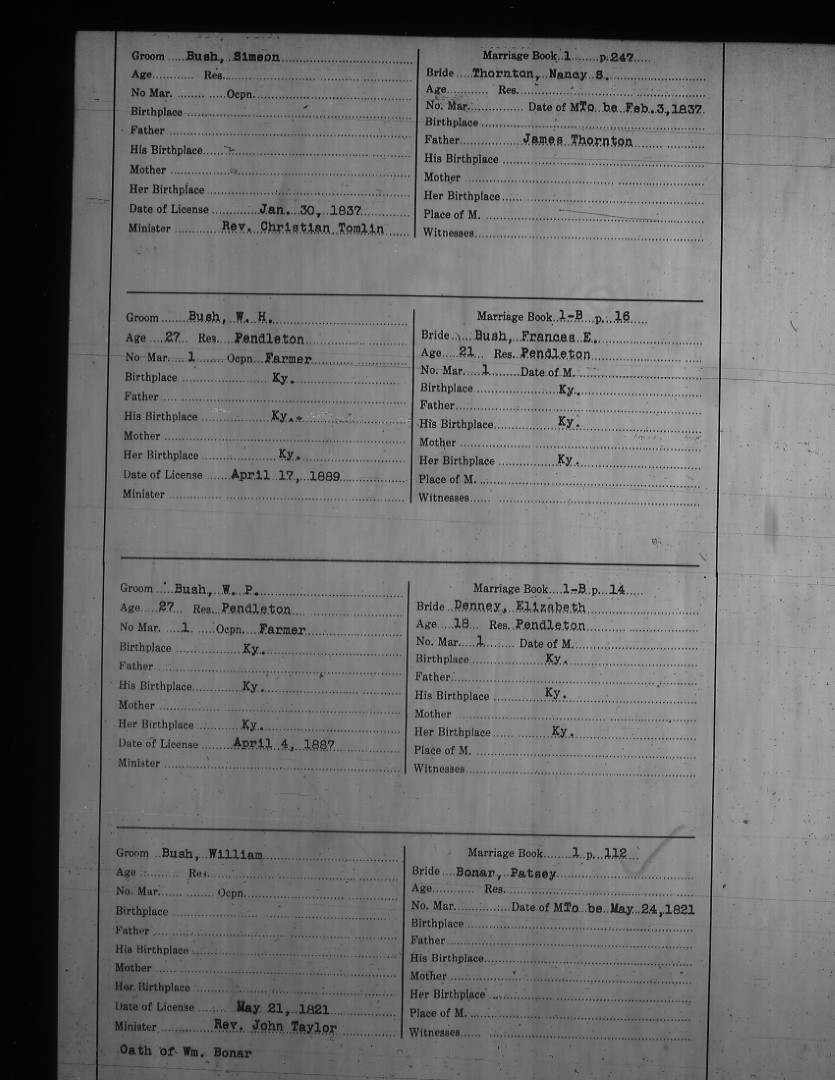 Groom Bush, Simeon
Age Res.
No Mar. Ocpn.
Birthplace
Father
His Birthplace
Mother
Her Birthplace
Date of License Jan. 30, 1837
Minister Rev. Christian Tomlin
Marriage Book 1 p. 247
Bride Thornton, Nancy S.
Age Res.
No. Mar. Date of M To be Feb. 3, 1837
Birthplace
Father James Thornton
His Birthplace
Mother
Her Birthplace
Place of M.
Witnesses
Groom Bush, W. H.
Age 27 Res. Pendleton
No Mar. 1 Ocpn. Farmer
Birthplace Ky.
Father
His Birthplace Ky.
Mother
Her Birthplace Ky.
Date of License April 17, 1889
Minister
Marriage Book 1-B p. 16
Bride Bush, Frances E.
Age 21 Res. Pendleton
No. Mar. 1 Date of M.
Birthplace Ky.
Father
His Birthplace Ky.
Mother
Her Birthplace Ky.
Place of M.
Witnesses
Groom Bush, W. P.
Age 27 Res. Pendleton
No Mar. 1 Ocpn. Farmer
Birthplace Ky.
Father
His Birthplace Ky.
Mother
Her Birthplace Ky.
Date of License April 4, 1887
Minister
Marriage Book 1-B p. 14
Bride Denney, Elizabeth
Age 18 Res. Pendleton
No. Mar. 1 Date of M.
Birthplace Ky.
Father
His Birthplace Ky.
Mother
Her Birthplace Ky.
Place of M.
Witnesses
Groom Bush, William
Age Res.
No. Mar. Ocpn.
Birthplace
Father
His Birthplace
Mother
Her Birthplace
Date of License May 21, 1821
Minister Rev. John Taylor
Oath of Wm. Bonar
Marriage Book 1 p. 112
Bride Bonar, Patsey
Age Res.
No. Mar. Date of M To be May 24, 1821
Birthplace
Father
His Birthplace
Mother
Her Birthplace
Place of M.
Witnesses